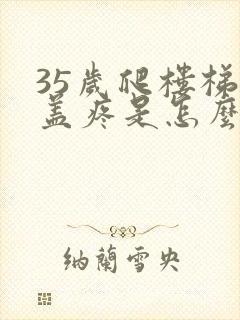 35歲爬樓梯
蓋疼是怎麼
納蘭雪央